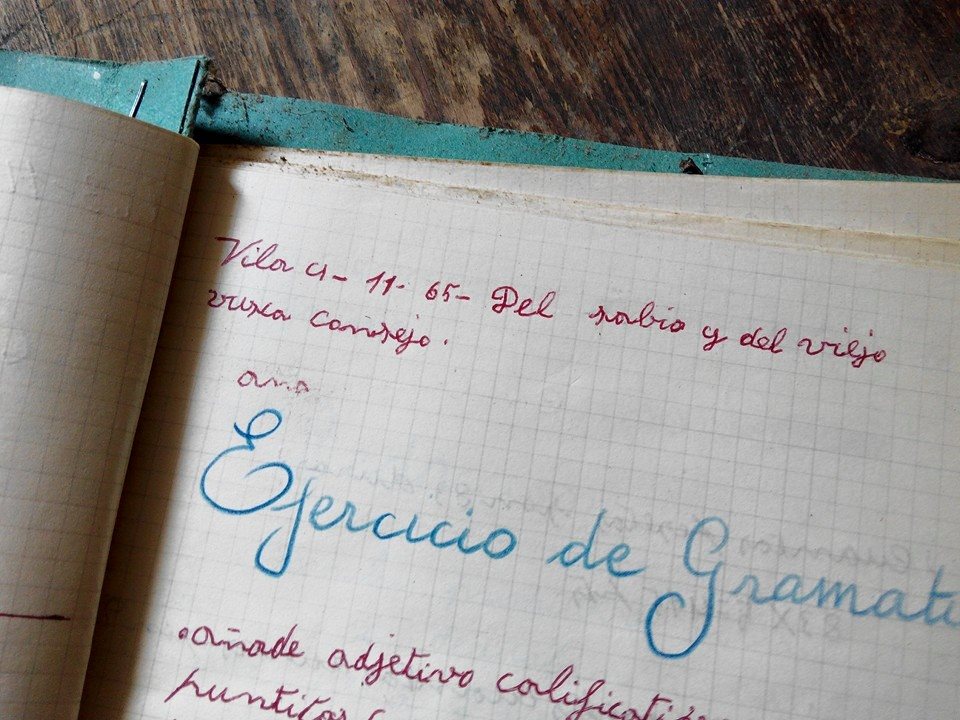 Vila 4- 11- 65- Del sabio y del viejo
usa consejo.
año
Ejercicio de Gramati
añade adjetivo calificativ
puntitos (